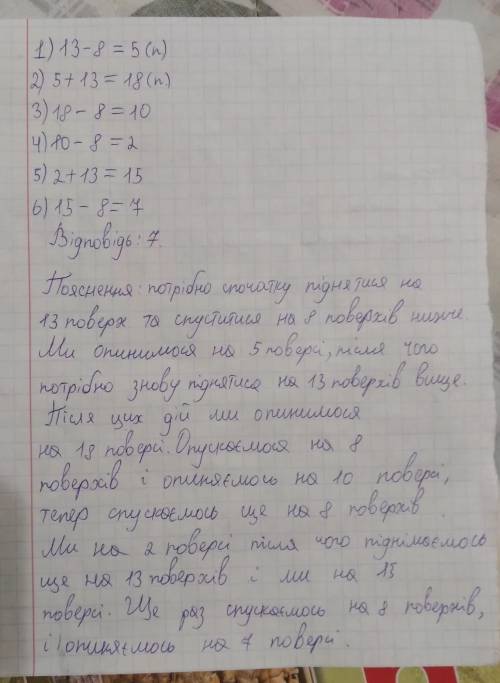 1) 13-8 = 5 (п)
2) 5+13 = 18 (п)
3) 18 - 8 = 10
4) 10 - 8 = 2
5) 2+13 = 15
6) 15 - 8 = 7
Відповідь: 7.
Пояснення: потрібно спочатку піднятися на
13 поверх та спуститися на 8 поверхів нижче.
Ми опинимося на 5 поверсі, після чого
потрібно знову піднятися на 13 поверхів вище.
Після цих дій ми опинимося
на 18 поверсі. Опускаємося на 8
поверхів і опиняємось на 10 поверсі,
тепер спускаємось ще на 8 поверхів.
Ми на 2 поверсі після чого піднімаємось
ще на 13 поверхів і ми на 15
поверсі. Ще раз спускаємось на 8 поверхів,
і опиняємось на 7 поверсі.